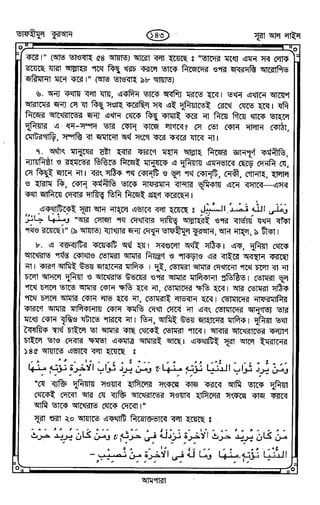 তাফহীমুল কুরআন ১৪৩ সূরা আল লাইল
করে।" (আত তাওবাহ ৫৪ আয়াত) আরো বলা হয়েছে : "তাদের মধ্যে এমন সব লোক
রয়েছে যারা আল্লাহর পথে কিছু খরচ করলে তাকে নিজেদের ওপর জবরদস্তি আরোপিত
জরিমানা মনে করে।" (আত তাওবাহ ৯৮ আয়াত)
৬. অন্য কথায় বলা যায়, একদিন তাকে অবশ্যি মরতে হবে। তখন এখানে আয়েশ
আরামের জন্য সে যা কিছু সংগ্রহ করেছিল সব এই দুনিয়াতেই রেখে যেতে হবে। যদি
নিজের আখেরাতের জন্য এখান থেকে কিছু কামাই করে না নিয়ে গিয়ে থাকে তাহলে
দুনিয়ার এ ধন-সম্পদ তার কোন্ কাজে লাগবে? সে তো কোন দালান কোঠা,
মোটরগাড়ি, সম্পত্তি বা জমানো অর্থ সংগে করে কবরে যাবে না।
৭. অর্থাৎ মানুষের স্রষ্টা হবার কারণে মহান আল্লাহ নিজের জ্ঞানপূর্ণ কর্মনীতি,
ন্যায়নিষ্ঠা ও রহমতের ভিত্তিতে নিজেই মানুষকে এ দুনিয়ায় এমনভাবে ছেড়ে দেননি যে,
সে কিছুই জানে না। বরং সঠিক পথ কোন্‌টি ও ভুল পথ কোন্‌টি, নেকী, গোনাহ, হালাল
ও হারাম কি, কোন্ কর্মনীতি তাকে নাফরমান বান্দার ভূমিকায় এনে বসাবে—এসব
কথা জানিয়ে দেবার দায়িত্ব তিনি নিজেই গ্রহণ করেছেন।
একথাটিকেই সূরা আন নাহলে এভাবে বলা হয়েছে : وَعَلَى اللّٰهِ قَصْدُ السَّبِيْلِ
وَمِنْهَا جَائِرٌ "আর সোজা পথ দেখাবার দায়িত্ব আল্লাহরই ওপর বর্তায় যখন বাঁকা
পথও রয়েছে।" (৯ আয়াত) ব্যাখ্যার জন্য দেখুন তাফহীমুল কুরআন, আন নাহল, ৯ টীকা।
৮. এ বক্তব্যটির কয়েকটি অর্থ হয়। সবগুলো অর্থই সঠিক। এক, দুনিয়া থেকে
আখেরাত পর্যন্ত কোথাও তোমরা আমার নিয়ন্ত্রণ ও পাকড়াও এর বাইরে অবস্থান করছো
না। কারণ আমিই উভয় জাহানের মালিক। দুই, তোমরা আমার দেখানো পথে চলো বা না
চলো আসলে দুনিয়া ও আখেরাত উভয়ের ওপর আমার মালিকানা প্রতিষ্ঠিত। তোমরা ভুল
পথে চললে তাতে আমার কোন ক্ষতি হবে না, তোমাদের ক্ষতি হবে। আর তোমরা সঠিক
পথে চললে আমার কোন লাভ হবে না, তোমরাই লাভবান হবে। তোমাদের নাফরমানির
কারণে আমার মালিকানায় কোন কমতি দেখা দেবে না এবং তোমাদের আনুগত্য তার
মধ্যে কোন বৃদ্ধিও ঘটাতে পারবে না। তিন, আমিই উভয় জাহানের মালিক। দুনিয়া তথা
বৈষয়িক স্বার্থ চাইলে তা আমার কাছ থেকেই তোমরা পাবে। আবার আখেরাতের কল্যাণ
চাইলে তাও দেবার ক্ষমতা একমাত্র আমারই আছে। একথাটিই সূরা আলে ইমরানের
১৪৫ আয়াতে এভাবে বলা হয়েছে :
وَمَنْ يُّرِدْ ثَوَابَ الدُّنْيَا نُؤْتِهٖ مِنْهَا ۚ وَمَنْ يُّرِدْ ثَوَابَ الْاٰخِرَةِ نُؤْتِهٖ مِنْهَا
"যে ব্যক্তি দুনিয়ায় সওয়াব হাসিলের সংকল্পে কাজ করবে আমি তাকে দুনিয়া
থেকেই দেবো আর যে ব্যক্তি আখেরাতের সওয়াব হাসিলের সংকল্পে কাজ করবে
আমি তাকে আখেরাত থেকে দেবো।"
সূরা শূরা ২০ আয়াতে একথাটি নিম্নোক্তভাবে বলা হয়েছে :
مَنْ كَانَ يُرِيْدُ حَرْثَ الْاٰخِرَةِ نَزِدْ لَهٗ فِيْ حَرْثِهٖ ۚ وَمَنْ كَانَ يُرِيْدُ حَرْثَ
الدُّنْيَا نُؤْتِهٖ مِنْهَا وَمَا لَهٗ فِي الْاٰخِرَةِ مِنْ نَّصِيْبٍ -
আমপারা